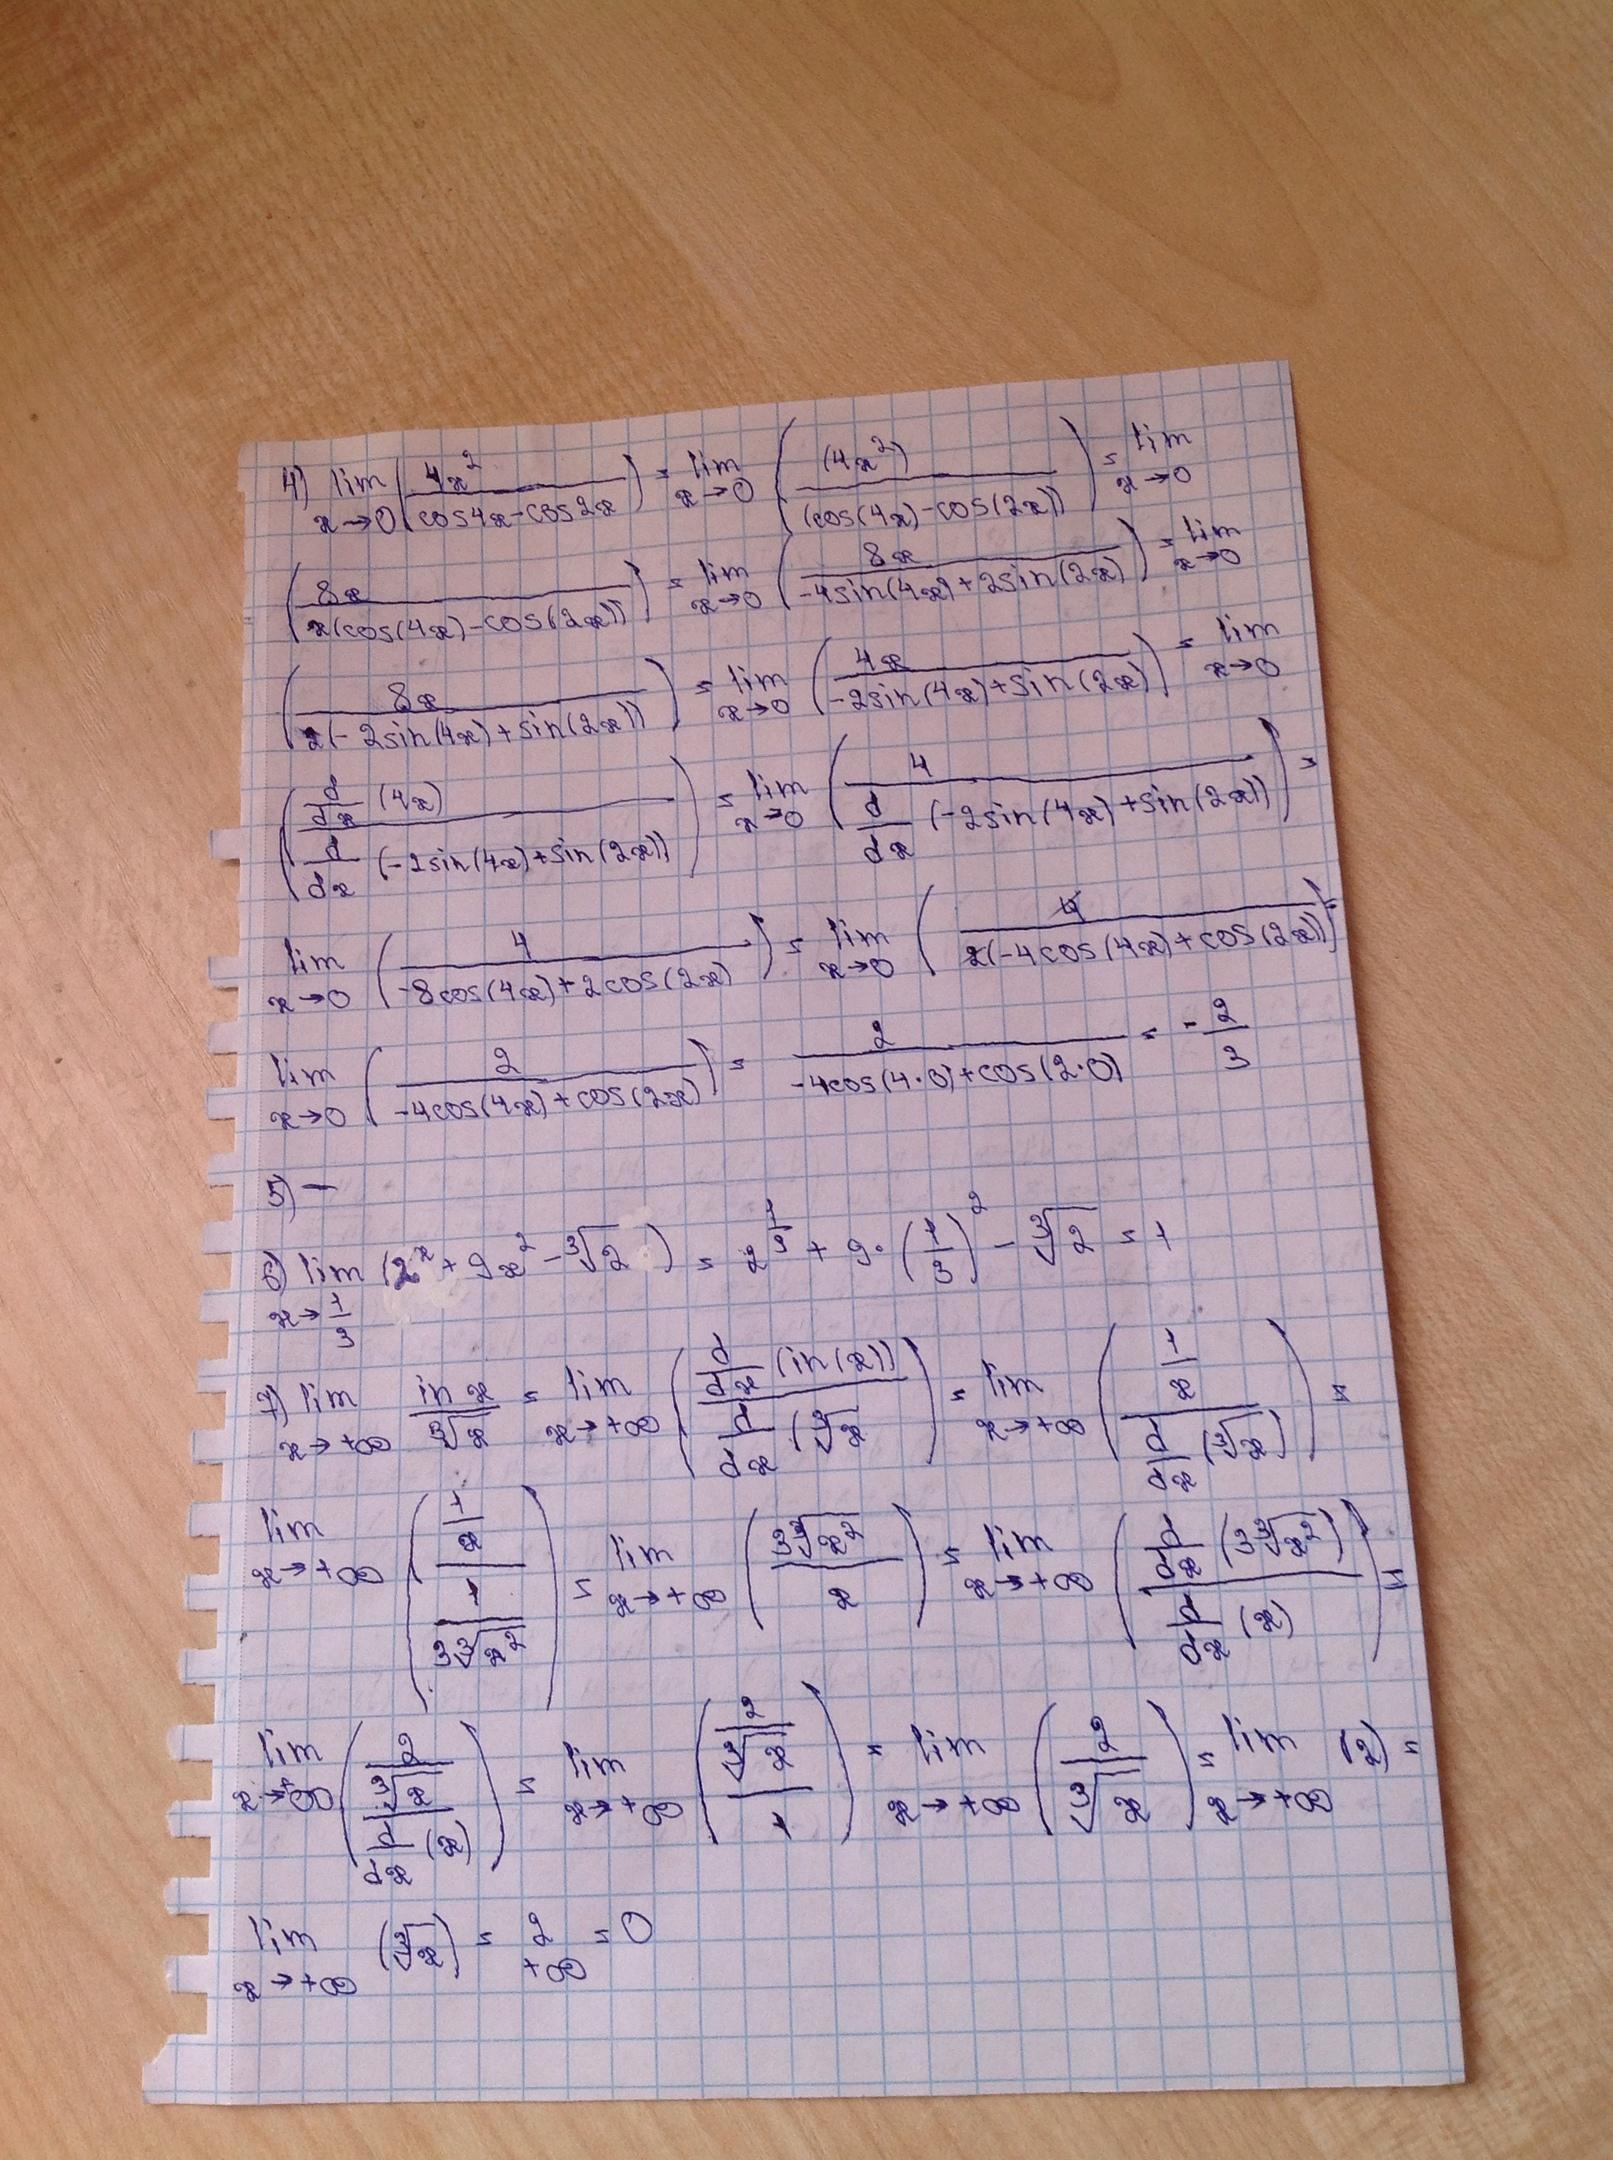 4) lim x→0 (4x² / cos4x-cos2x) = lim x→0 ((4x²) / (cos(4x)-cos(2x))) = lim x→0
(8x / x(cos(4x)-cos(2x))) = lim x→0 (8x / -4sin(4x)+2sin(2x)) = lim x→0
(8x / 2(-2sin(4x)+sin(2x))) = lim x→0 (4x / -2sin(4x)+sin(2x)) = lim x→0
(d/dx (4x) / d/dx (-2sin(4x)+sin(2x))) = lim x→0 (4 / d/dx (-2sin(4x)+sin(2x))) =
lim x→0 (4 / -8cos(4x)+2cos(2x)) = lim x→0 (4 / 2(-4cos(4x)+cos(2x))) =
lim x→0 (2 / -4cos(4x)+cos(2x)) = 2 / -4cos(4·0)+cos(2·0) = -2/3
5) —
6) lim x→1/3 (2ˣ + 9x² - ∛2) = 2^(1/3) + 9·(1/3)² - ∛2 = 1
7) lim x→+∞ in x / ∛x = lim x→+∞ (d/dx (in(x)) / d/dx (∛x) = lim x→+∞ (1/x / d/dx (∛x)) =
lim x→+∞ (1/x / 1/3∛x²) = lim x→+∞ (3∛x² / x) = lim x→+∞ (d/dx (3∛x²) / d/dx (x)) =
lim x→+∞ (2/∛x / d/dx (x)) = lim x→+∞ (2/∛x / 1) = lim x→+∞ (2 / ∛x) = lim x→+∞ (2) =
lim x→+∞ (∛x) = 2 +∞ = 0